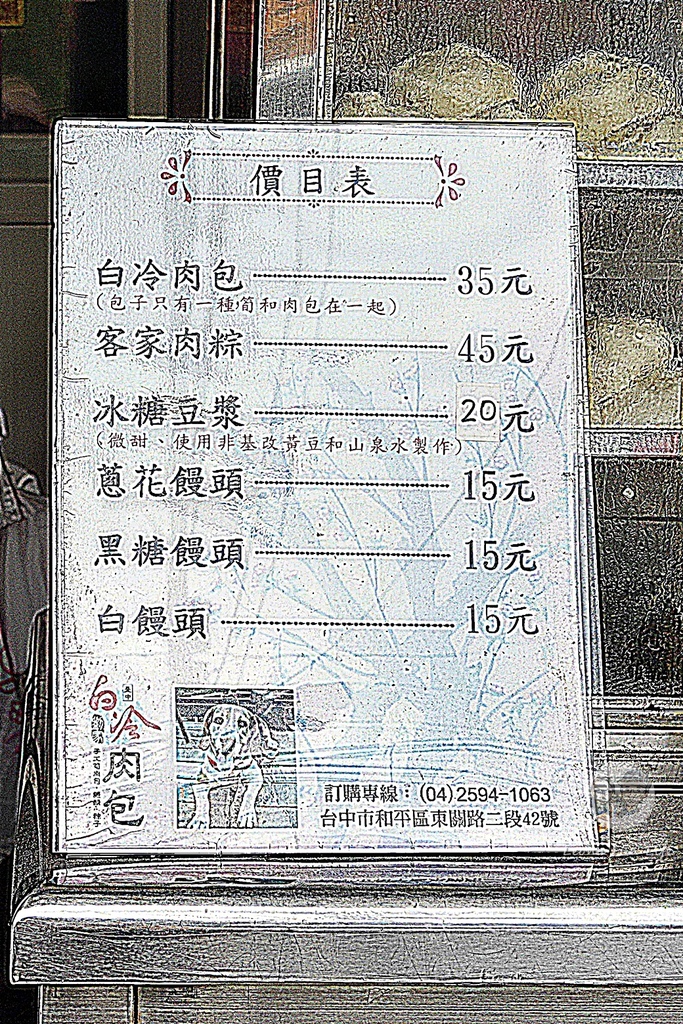 價目表
白冷肉包 35元
（包子只有一種筍和肉包在一起）
客家肉粽 45元
冰糖豆漿 20元
（微甜、使用非基改黃豆和山泉水製作）
蔥花饅頭 15元
黑糖饅頭 15元
白饅頭 15元
白冷
肉包
訂購專線：(04)2594-1063
台中市和平區東關路二段42號